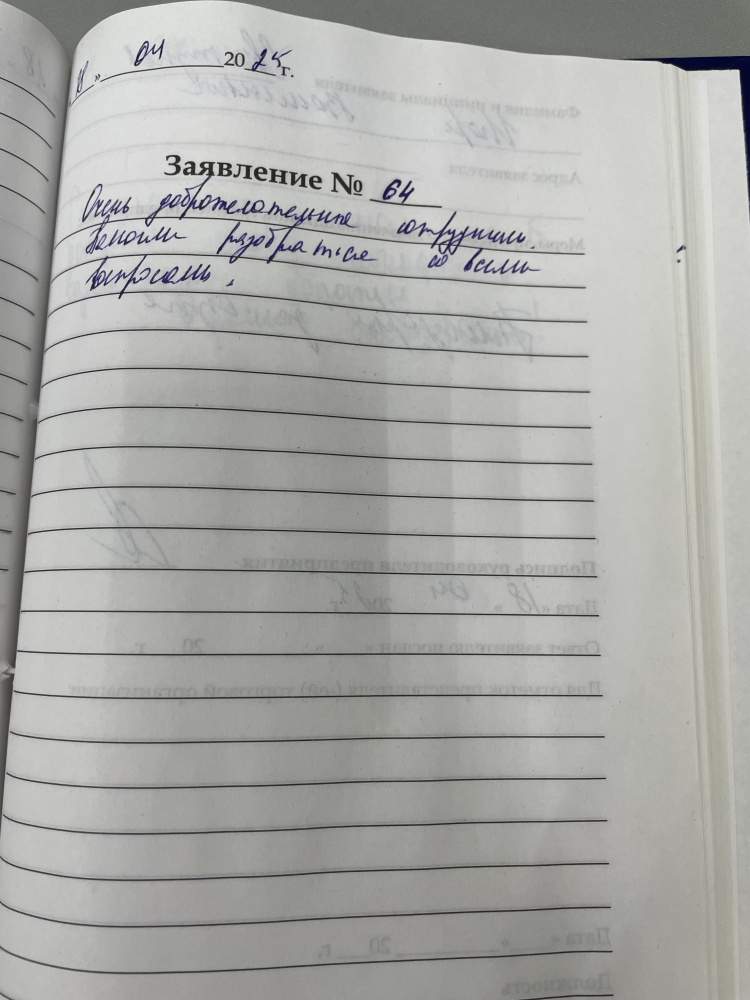 18 » 04 2025 г.
Заявление № 64
Очень доброжелательные сотрудники.
Помогли разобраться со всеми
вопросами.